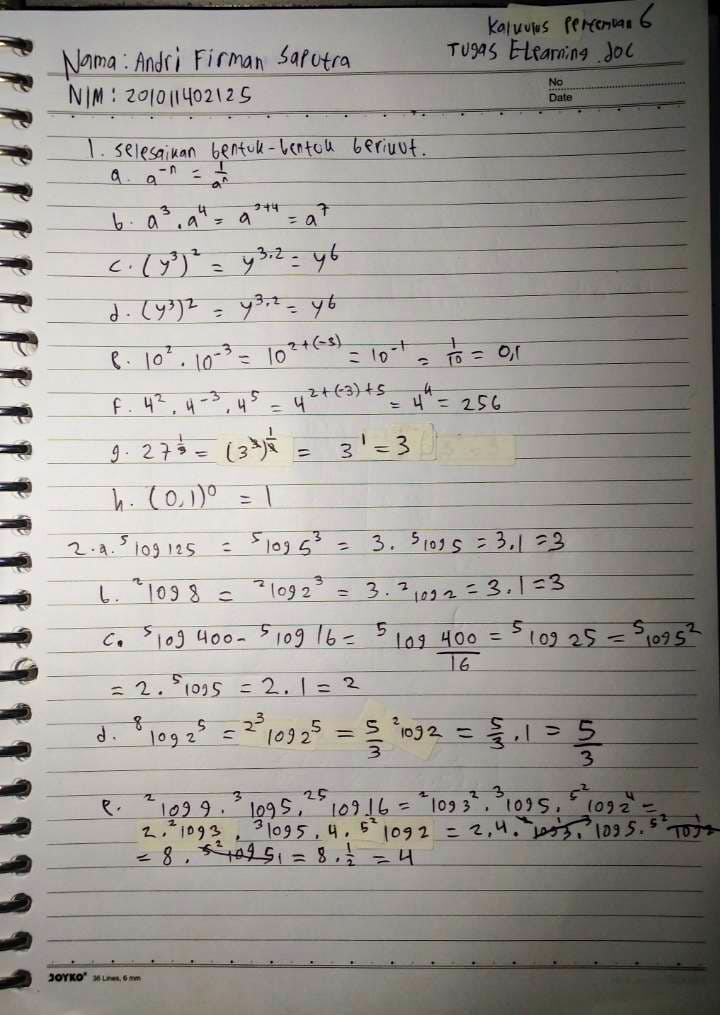 Kalkulus Pertemuan 6
Tugas Elearning .doc
Nama : Andri Firman Saputra
NIM : 201011402125
No
Date
1. selesaikan bentuk-bentuk berikut.
a. a⁻ⁿ = 1/aⁿ
b. a³ . a⁴ = a³⁺⁴ = a⁷
c. (y³)² = y³·² = y⁶
d. (y³)² = y³·² = y⁶
e. 10² . 10⁻³ = 10²⁺⁽⁻³⁾ = 10⁻¹ = 1/10 = 0,1
f. 4² . 4⁻³ . 4⁵ = 4²⁺⁽⁻³⁾⁺⁵ = 4⁴ = 256
g. 27^(1/3) = (3³)^(1/3) = 3¹ = 3
h. (0,1)⁰ = 1
2. a. ⁵log 125 = ⁵log 5³ = 3 . ⁵log 5 = 3.1 = 3
b. ²log 8 = ²log 2³ = 3 . ²log 2 = 3.1 = 3
c. ⁵log 400 - ⁵log 16 = ⁵log 400/16 = ⁵log 25 = ⁵log 5²
= 2 . ⁵log 5 = 2.1 = 2
d. ⁸log 2⁵ = ²^³log 2⁵ = 5/3 ²log 2 = 5/3 . 1 = 5/3
e. ²log 9 . ³log 5 . ²⁵log 16 = ²log 3² . ³log 5 . ⁵^²log 2⁴ =
2 . ²log 3 . ³log 5 . 4 . ⁵^²log 2 = 2.4 . ²log 3 . ³log 5 . ⁵^²log 2
= 8 . = 8 . 1/2 = 4
JOYKO 36 Lines, 6 mm